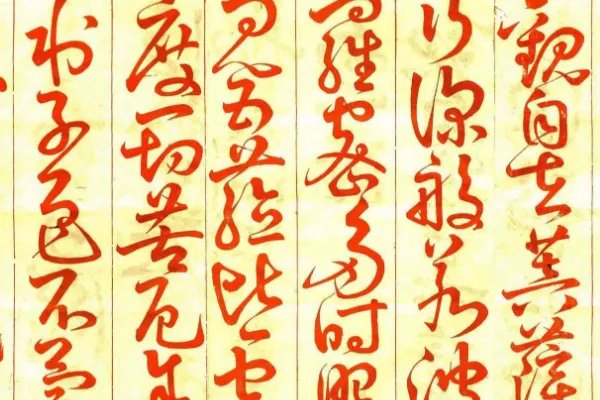 觀自在菩薩
行深般若波
羅蜜多時照
見五蘊皆空
度一切苦厄舍
利子色不異